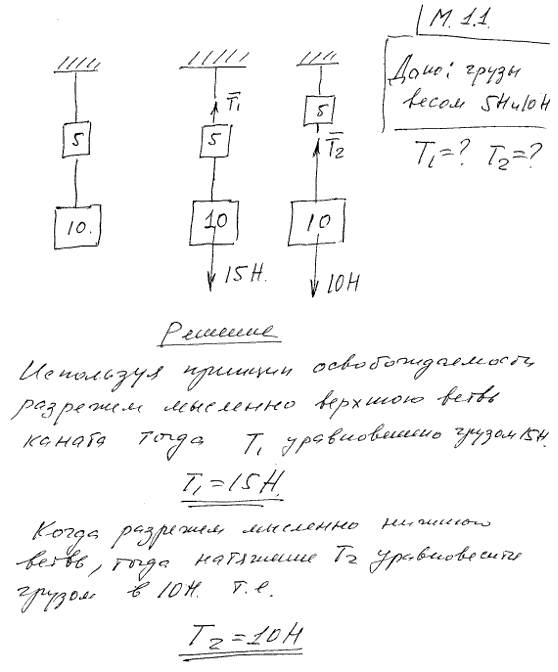 М. 1.1.
Дано: грузы
весом 5Н и 10Н
T₁=? T₂=?
5
10.
T̄₁
5
10
15Н.
5
T̄₂
10
10Н
Решение
Используя принцип освобождаемости
разрежем мысленно верхнюю ветвь
каната тогда T₁ уравновешено грузом 15Н.
T₁=15Н.
Когда разрежем мысленно нижнюю
ветвь, тогда натяжение T₂ уравновесится
грузом в 10Н. т.е.
T₂=10Н